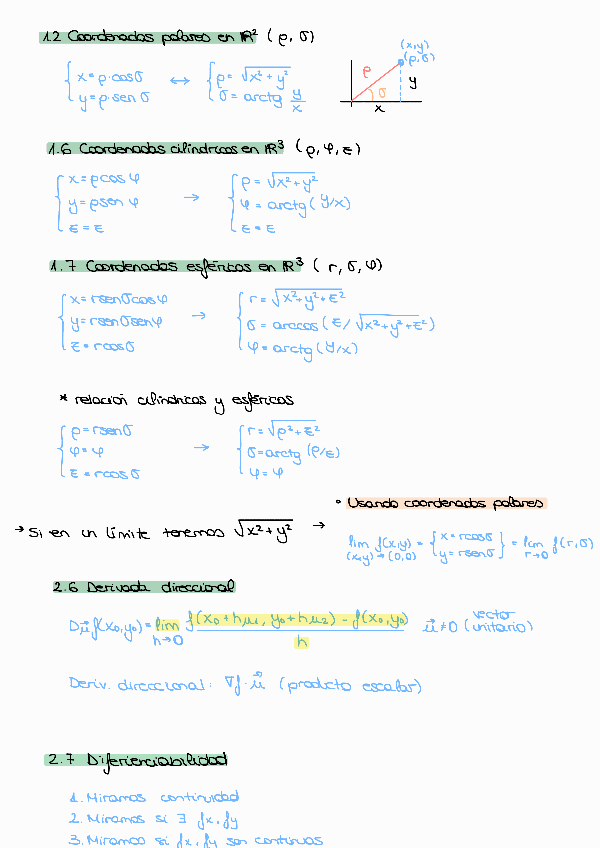 1.2 Coordenadas polares en ℝ² (ρ, σ)
(x,y)
(ρ,σ)
ρ
σ
y
x
{ x=ρ·cosσ ↔ { ρ=√x²+y²
y=ρ·sen σ σ=arctg y/x
1.6 Coordenadas cilíndricas en ℝ³ (ρ, φ, z)
{ x=ρcos φ → { ρ=√x²+y²
y=ρsen φ φ=arctg(y/x)
z=z z=z
1.7 Coordenadas esféricas en ℝ³ (r, σ, φ)
{ x=rsenσcosφ → { r=√x²+y²+z²
y=rsenσsenφ σ=arccos(z/√x²+y²+z²)
z=rcosσ φ=arctg(y/x)
* relación cilíndricas y esféricas
{ ρ=rsenσ → { r=√ρ²+z²
φ=φ σ=arctg(ρ/z)
z=rcosσ φ=φ
• Usando coordenadas polares
→ Si en un límite tenemos √x²+y² →
lim f(x,y) = { x=rcosσ } = lim f(r,σ)
(x,y)→(0,0) y=rsenσ r→0
2.6 Derivada direccional
Du⃗f(x0,y0)=lim f(x0+hu1, y0+hu2) - f(x0,y0) u⃗≠0 (vector unitario)
h→0 h
Deriv. direccional: ∇f·u⃗ (producto escalar)
2.7 Diferienciabilidad
1. Miramos continuidad
2. Miramos si ∃ fx, fy
3. Miramos si fx, fy son continuas